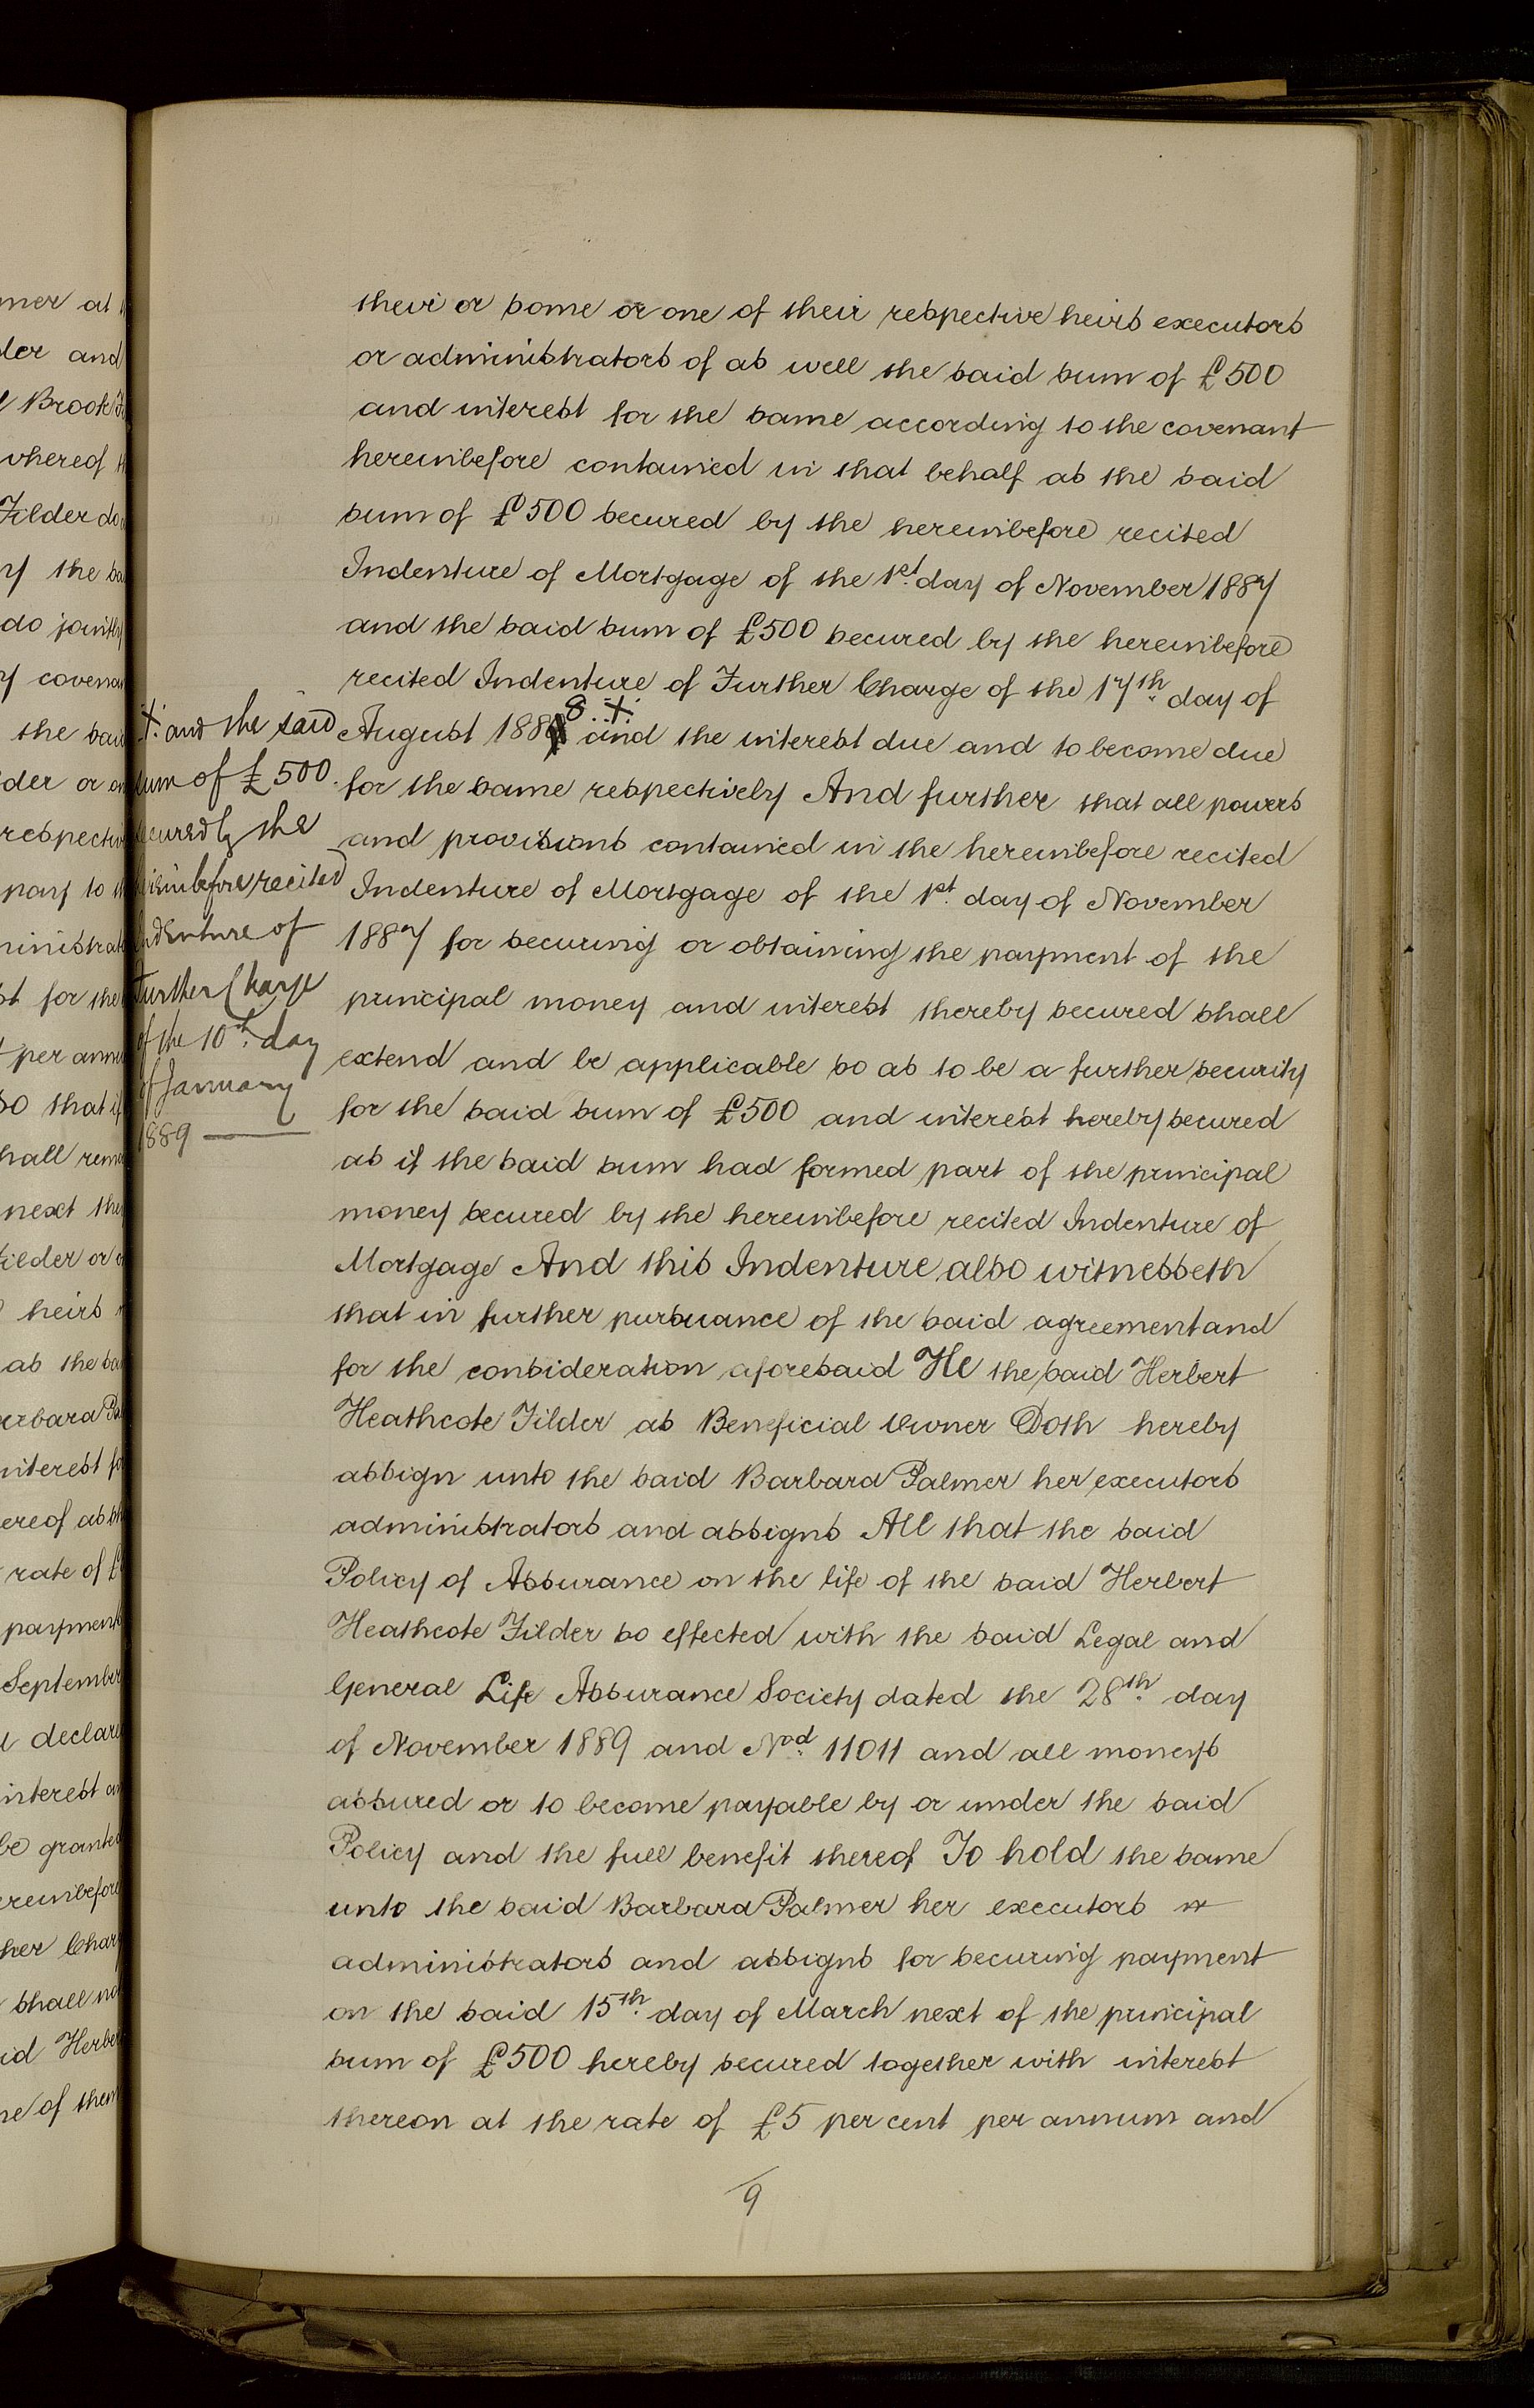 mer at
der and
Brook
whereof
Filder do
the
do jointly
covenan
the said
der or
respectiv
pay to
ministrat
for the
per ann
so that if
shall rem
next the
Filder or
heirs
as the
arbara
interest
ereof as
rate of £
payment
September
declare
interest
be granted
ereinbefore
her Char
shall no
id Herber
ne of them
their or some or one of their respective heirs executors
or administrators of as well the said sum of £500
and interest for the same according to the covenant
hereinbefore contained in that behalf as the said
sum of £500 secured by the hereinbefore recited
Indenture of Mortgage of the 1st day of November 1887
and the said sum of £500 secured by the hereinbefore
recited Indenture of Further Charge of the 17th day of
August 1888 X and the interest due and to become due
for the same respectively And further that all powers
and provisions contained in the hereinbefore recited
Indenture of Mortgage of the 1st day of November
1887 for securing or obtaining the payment of the
principal money and interest thereby secured shall
extend and be applicable so as to be a further security
for the said sum of £500 and interest hereby secured
as if the said sum had formed part of the principal
money secured by the hereinbefore recited Indenture of
Mortgage And this Indenture also witnesseth
that in further pursuance of the said agreement and
for the consideration aforesaid He the said Herbert
Heathcote Filder as Beneficial Owner Doth hereby
assign unto the said Barbara Palmer her executors
administrators and assigns All that the said
Policy of Assurance on the life of the said Herbert
Heathcote Filder so effected with the said Legal and
General Life Assurance Society dated the 28th day
of November 1889 and Nod 11011 and all moneys
assured or to become payable by or under the said
Policy and the full benefit thereof To hold the same
unto the said Barbara Palmer her executors
administrators and assigns for securing payment
on the said 15th day of March next of the principal
sum of £500 hereby secured together with interest
thereon at the rate of £5 per cent per annum and
X and the said
sum of £500
secured by the
hereinbefore recited
Indenture of
Further Charge
of the 10th day
of January
1889
9